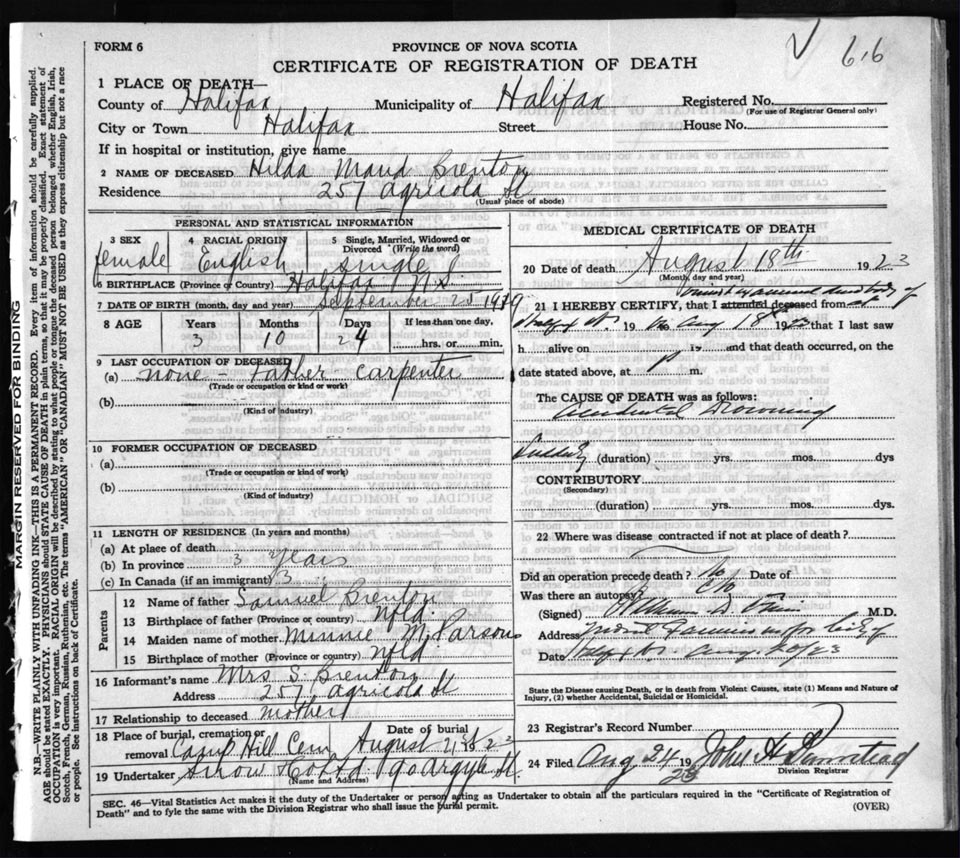 FORM 6
PROVINCE OF NOVA SCOTIA
CERTIFICATE OF REGISTRATION OF DEATH
√ 616
1 PLACE OF DEATH—
County of Halifax Municipality of Halifax Registered No.
(For use of Registrar General only)
City or Town Halifax Street: House No.
If in hospital or institution, give name
2 NAME OF DECEASED Hilda Maud Brenton
Residence 257 Agricola St
(Usual place of abode)
PERSONAL AND STATISTICAL INFORMATION
3 SEX 4 RACIAL ORIGIN 5 Single, Married, Widowed or Divorced (Write the word)
female English single
6 BIRTHPLACE (Province or Country) Halifax N.S.
7 DATE OF BIRTH (month, day and year) September 25 1919
8 AGE Years Months Days If less than one day.
3 10 24 hrs. or min.
9 LAST OCCUPATION OF DECEASED
(a) none - Father Carpenter
(Trade or occupation or kind of work)
(b)
(Kind of industry)
10 FORMER OCCUPATION OF DECEASED
(a)
(Trade or occupation or kind of work)
(b)
(Kind of industry)
11 LENGTH OF RESIDENCE (In years and months)
(a) At place of death
(b) In province 3 years
(c) In Canada (if an immigrant) 3
Parents
12 Name of father Samuel Brenton
13 Birthplace of father (Province or country) Nfld
14 Maiden name of mother Minnie M. Parsons
15 Birthplace of mother (Province or country) Nfld
16 Informant's name Mrs S. Brenton
Address 257 Agricola St
17 Relationship to deceased mother
18 Place of burial, cremation or removal Camp Hill Cem Date of burial August 21st 23
19 Undertaker Snow & Co Ltd 90 Argyle St.
(Name and Address)
MEDICAL CERTIFICATE OF DEATH
20 Date of death August 18th 1923
(Month, day and year)
21 I HEREBY CERTIFY, that I attended deceased from
19 to Aug 18 1923 that I last saw
h alive on 19 and that death occurred, on the
date stated above, at m.
The CAUSE OF DEATH was as follows:
Accidental Drowning
Suddenly (duration) yrs. mos. dys
CONTRIBUTORY
(Secondary)
(duration) yrs. mos. dys.
22 Where was disease contracted if not at place of death?
Did an operation precede death? No Date of
Was there an autopsy? No
(Signed) M.D.
Address
Date Aug 20/23
State the Disease causing Death, or in death from Violent Causes, state (1) Means and Nature of Injury, (2) whether Accidental, Suicidal or Homicidal.
23 Registrar's Record Number
24 Filed Aug 24 1923 John H.
Division Registrar
SEC. 46—Vital Statistics Act makes it the duty of the Undertaker or person acting as Undertaker to obtain all the particulars required in the "Certificate of Registration of
Death" and to fyle the same with the Division Registrar who shall issue the burial permit.
(OVER)
MARGIN RESERVED FOR BINDING
N.B.—WRITE PLAINLY WITH UNFADING INK—THIS IS A PERMANENT RECORD. Every item of information should be carefully supplied.
AGE should be stated EXACTLY. PHYSICIANS should STATE CAUSE OF DEATH in plain terms, so that it may be properly classified. Exact statement of
OCCUPATION is very important. RACIAL ORIGIN will be described by stating to what people or tongue the deceased person belonged whether English, Irish,
Scotch, French, German, Russian, Ruthenian, etc. The terms "AMERICAN" OR "CANADIAN" MUST NOT BE USED as they express citizenship but not a race
or people. See instructions on back of Certificate.